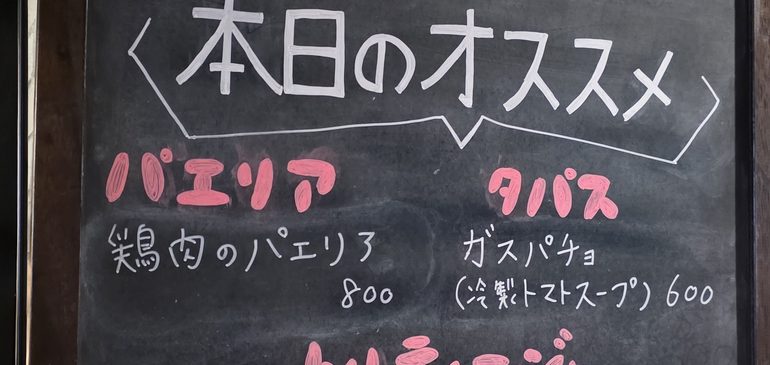 本日のオススメ
パエリア
鶏肉のパエリア
800
タパス
ガスパチョ
(冷製トマトスープ) 600